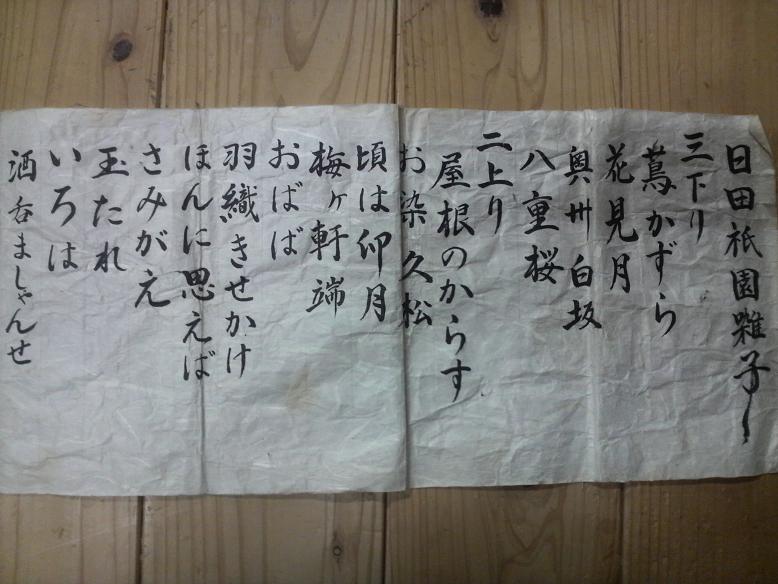 日田祇園囃子
三下り
蔦かずら
花見月
奥州白坂
八重桜
二上り
屋根のからす
お染久松
頃は卯月
梅ヶ軒端
おばば
羽織きせかけ
ほんに思えば
さみがえ
玉たれ
いろは
酒呑ましゃんせ